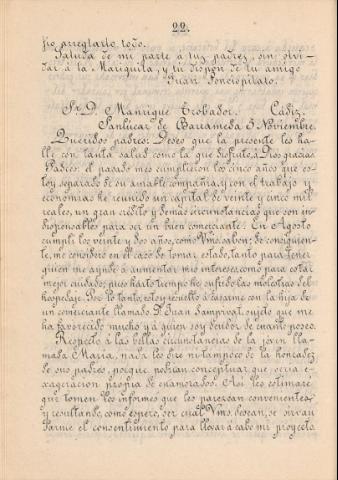 22.
fio arreglarlo todo.
Saluda de mi parte á tus padres, sin olvi-
dar á la Mariquita, y tu dispon de tu amigo
Juan Ponciopilato.
Sr. D. Manrique Trobador. Cádiz.
Sanlucar de Barrameda 3 Noviembre.
Queridos padres: Deseo que la presente les ha-
lle con tanta salud como la que disfruto, á Dios gracias.
Padres: el pasado mes cumplieron los cinco años que es-
toy separado de su amable compañia, y con el trabajo y
economias he reunido un capital de veinte y cinco mil
reales, un gran crédito y demas circunstancias que son in-
dispensables para ser un buen comerciante. En Agosto
cumplí los veinte y dos años, como Vms. saben; de consiguien-
te, me considero en el caso de tomar estado, tanto para tener
quien me ayude á aumentar mis intereses, como para estar
mejor cuidado; pues harto tiempo he sufrido las molestias del
hospedaje. Por lo tanto, estoy resuelto á casarme con la hija de
un comerciante llamado D. Juan Samprvat, sujeto que me
ha favorecido mucho y á quien soy deudor de cuanto poseo.
Respecto á las bellas circunstancias de la jóven lla-
mada Maria, nada les diré ni tampoco de la honradez
de sus padres, porque podrian conceptuar que seria e-
xageracion propia de enamorados. Así les estimaré
que tomen los informes que les parezcan convenientes,
y resultando, como espero, ser cual Vms. desean, se sirvan
darme el consentimiento para llevar á cabo mi proyecto